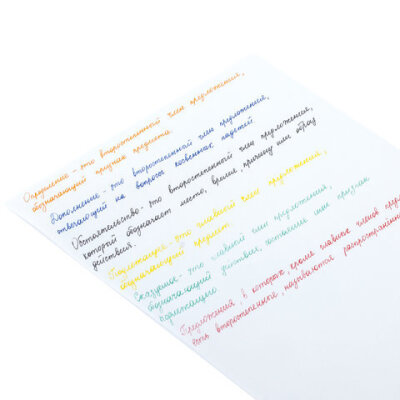 Определение - это второстепенный член предложения,
обозначающий признак предмета.
Дополнение - это второстепенный член предложения,
отвечающий на вопросы косвенных падежей
Обстоятельство - это второстепенный член предложения,
который обозначает место, время, причину или образ
действия.
Подлежащее - это главный член предложения,
обозначающий предмет.
Сказуемое - это главный член предложения,
обозначающий действие, состояние или признак
подлежащего.
Предложения, в которых, кроме главных членов предлож
есть второстепенные, называются распространён